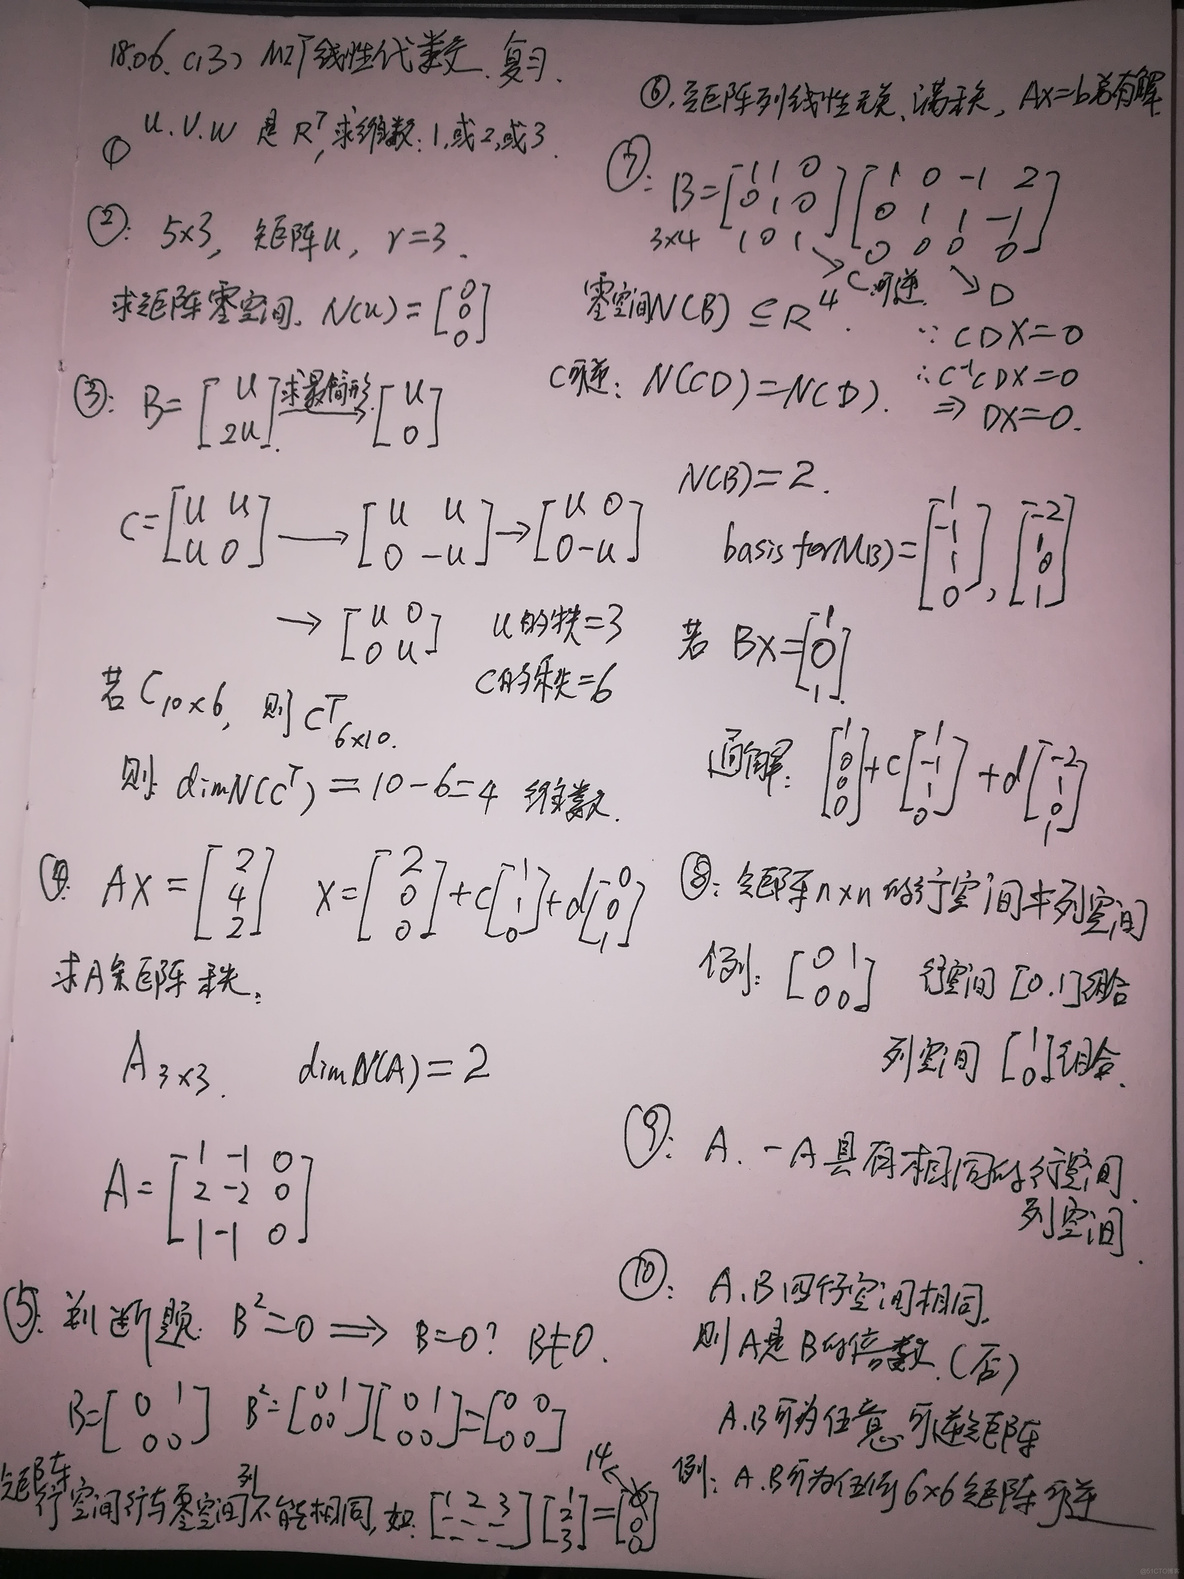 18.06. (13) MIT线性代数 复习.
① U.V.W 是 R⁷, 求维数: 1, 或2, 或3.
②: 5×3, 矩阵U, r=3.
求矩阵零空间. N(U) = [0 0 0]
③: B= [U 2U] 求最简形 → [U 0]
C= [U U; U 0] → [U U; 0 -U] → [U 0; 0 -U]
→ [U 0; 0 U] U的秩=3
C的秩=6
若 C₁₀ₓ₆, 则 Cᵀ₆ₓ₁₀.
则: dimN(Cᵀ) = 10-6=4 维数.
④: AX = [2 4 2] X= [2 0 0] +c [1 1 0] +d [0 0 1]
求A矩阵 秩.
A 3×3. dimN(A) = 2
A= [1 -1 0; 2 -2 0; 1 -1 0]
⑤: 判断题: B²=0 ⟹ B=0? B≠0.
B= [0 1; 0 0] B²= [0 1; 0 0] [0 1; 0 0] = [0 0; 0 0]
矩阵行空间行与零空间列不能相同, 如: [1 2 3; - - -] [1 2 3] = [0 0 0] 14
⑥. 矩阵列线性无关、满秩, AX=b总有解
⑦: B= [1 1 0; 0 1 0; 1 0 1] [1 0 -1 2; 0 1 1 -1; 0 0 0 0]
3×4
↘ C可逆 ↘ D
零空间N(B) ⊆ R⁴. ∵ CDX=0
C可逆: N(CD)=N(D). ∴ C⁻¹CDX=0
⇒ DX=0.
N(B)=2.
basis for N(B)= [1 -1 1 0], [-2 1 0 1]
若 BX= [1 0 1]
通解: [1 0 0 0] +c [1 -1 1 0] +d [-2 1 0 1]
⑧: 矩阵n×n 的行空间≠列空间
例: [0 1; 0 0] 行空间 [0.1]组合
列空间 [1 0]组合.
⑨: A. -A具有相同的行空间.
列空间.
⑩: A.B四个子空间相同,
则A是B的倍数. (否)
A.B可为任意 可逆矩阵
例: A.B可为任何6×6矩阵 可逆
@51CTO博客